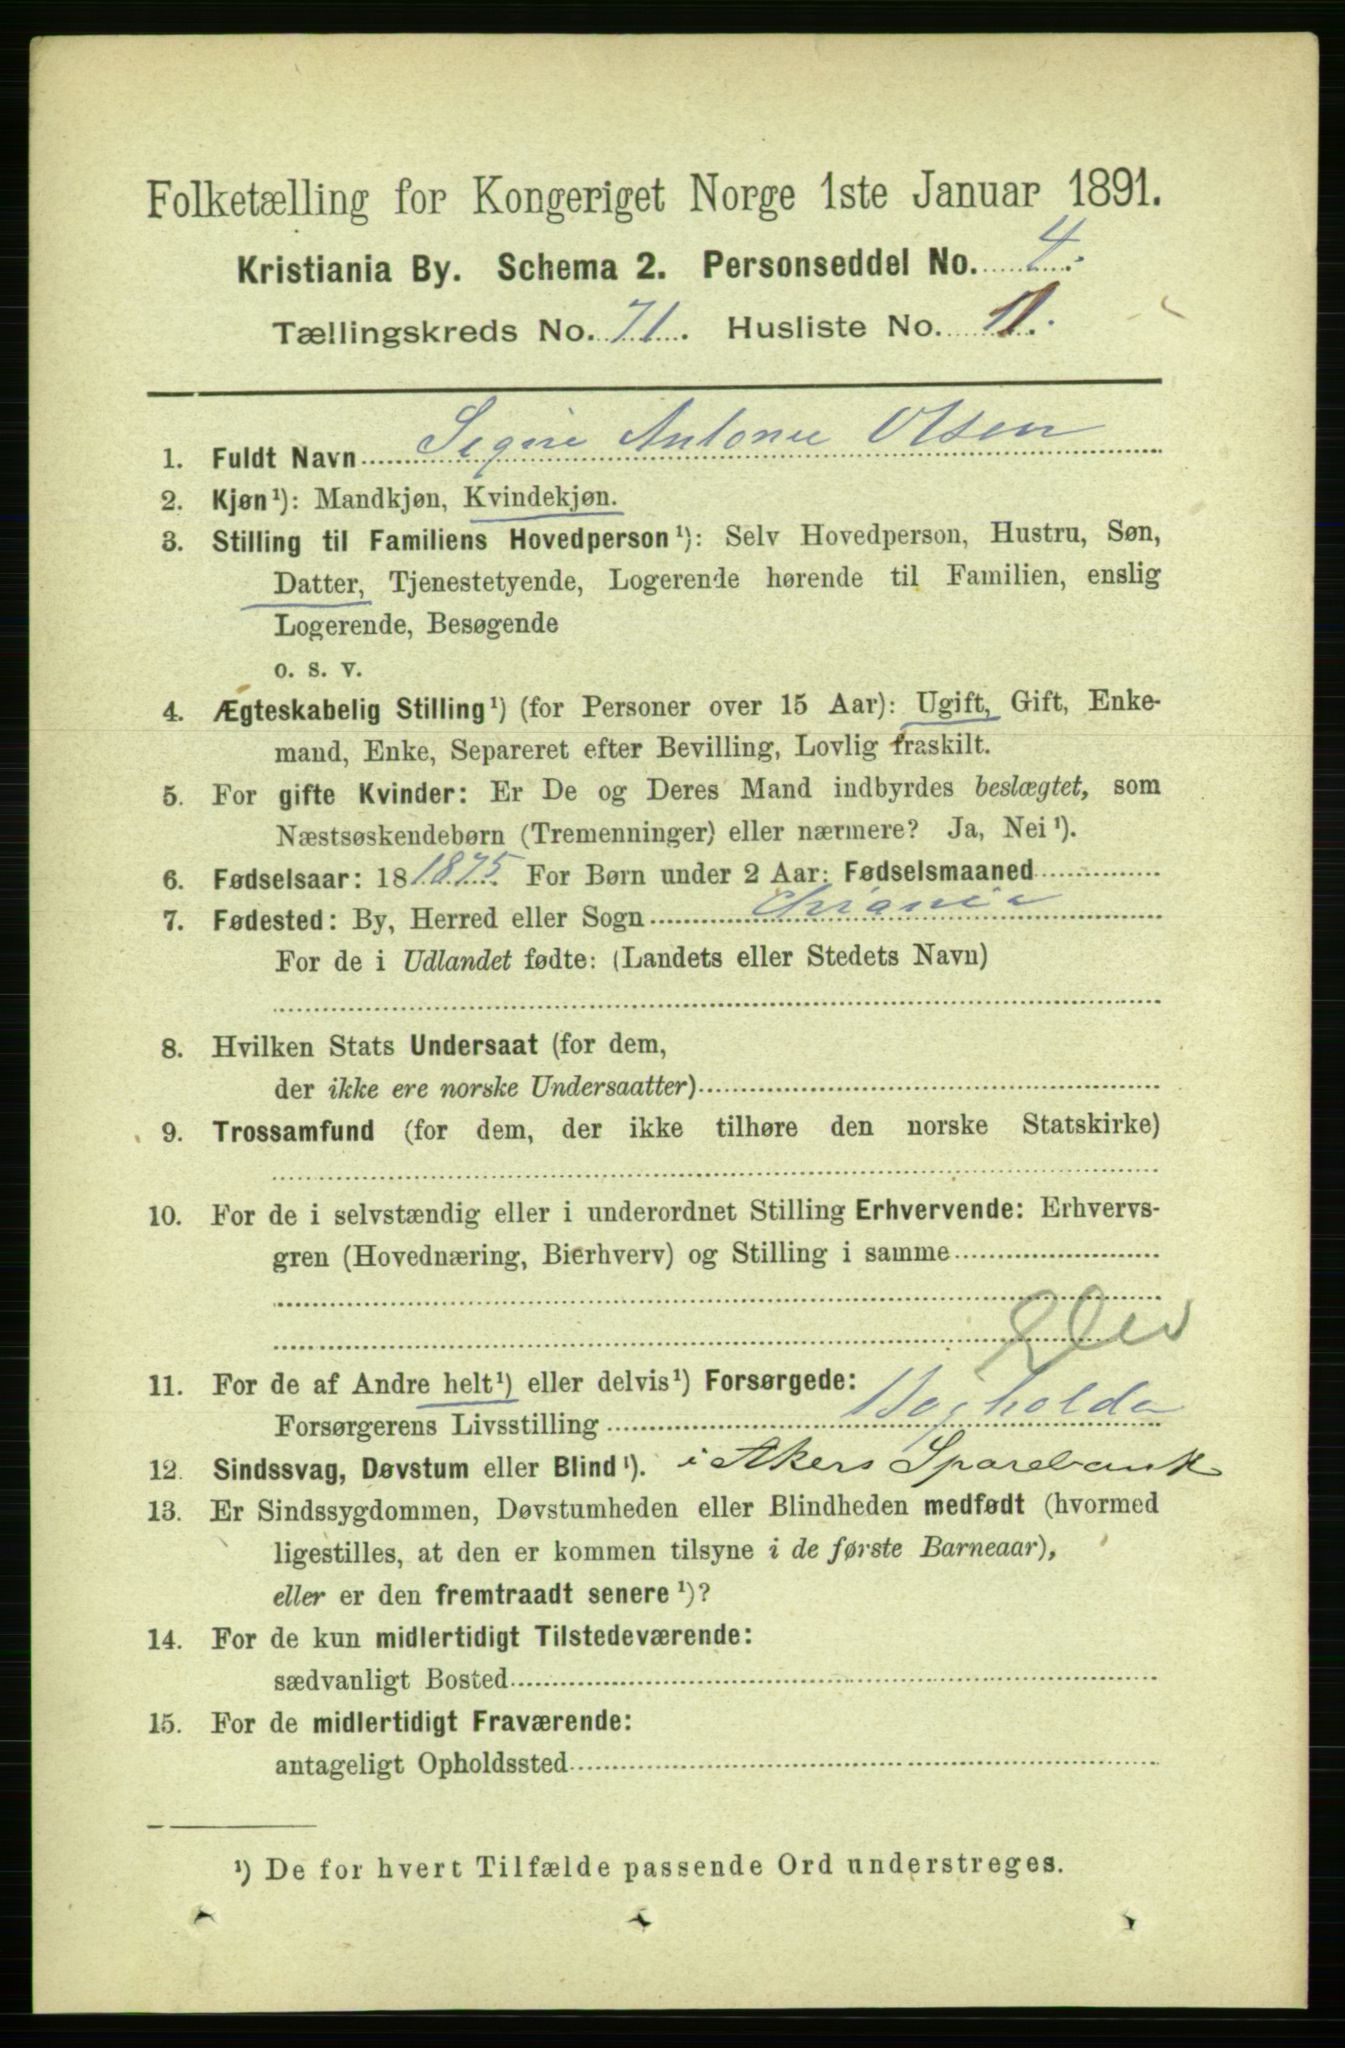 Folketælling for Kongeriget Norge 1ste Januar 1891.
Kristiania By. Schema 2. Personseddel No. 4.
Tællingskreds No. 71. Husliste No. 11.
1. Fuldt Navn Signe Antonie Olsen
2. Kjøn¹): Mandkjøn, Kvindekjøn.
3. Stilling til Familiens Hovedperson¹): Selv Hovedperson, Hustru, Søn,
Datter, Tjenestetyende, Logerende hørende til Familien, enslig
Logerende, Besøgende
o. s. v.
4. Ægteskabelig Stilling¹) (for Personer over 15 Aar): Ugift, Gift, Enke-
mand, Enke, Separeret efter Bevilling, Lovlig fraskilt.
5. For gifte Kvinder: Er De og Deres Mand indbyrdes beslægtet, som
Næstsøskendebørn (Tremenninger) eller nærmere? Ja, Nei¹).
6. Fødselsaar: 18 1875. For Børn under 2 Aar: Fødselsmaaned
7. Fødested: By, Herred eller Sogn Chrania
For de i Udlandet fødte: (Landets eller Stedets Navn)
8. Hvilken Stats Undersaat (for dem,
der ikke ere norske Undersaatter)
9. Trossamfund (for dem, der ikke tilhøre den norske Statskirke)
10. For de i selvstændig eller i underordnet Stilling Erhvervende: Erhvervs-
gren (Hovednæring, Bierhverv) og Stilling i samme
Elev
11. For de af Andre helt¹) eller delvis¹) Forsørgede:
Forsørgerens Livsstilling Bogholder
12. Sindssvag, Døvstum eller Blind¹). i Akers Sparebank
13. Er Sindssygdommen, Døvstumheden eller Blindheden medfødt (hvormed
ligestilles, at den er kommen tilsyne i de første Barneaar),
eller er den fremtraadt senere¹)?
14. For de kun midlertidigt Tilstedeværende:
sædvanligt Bosted
15. For de midlertidigt Fraværende:
antageligt Opholdssted
¹) De for hvert Tilfælde passende Ord understreges.